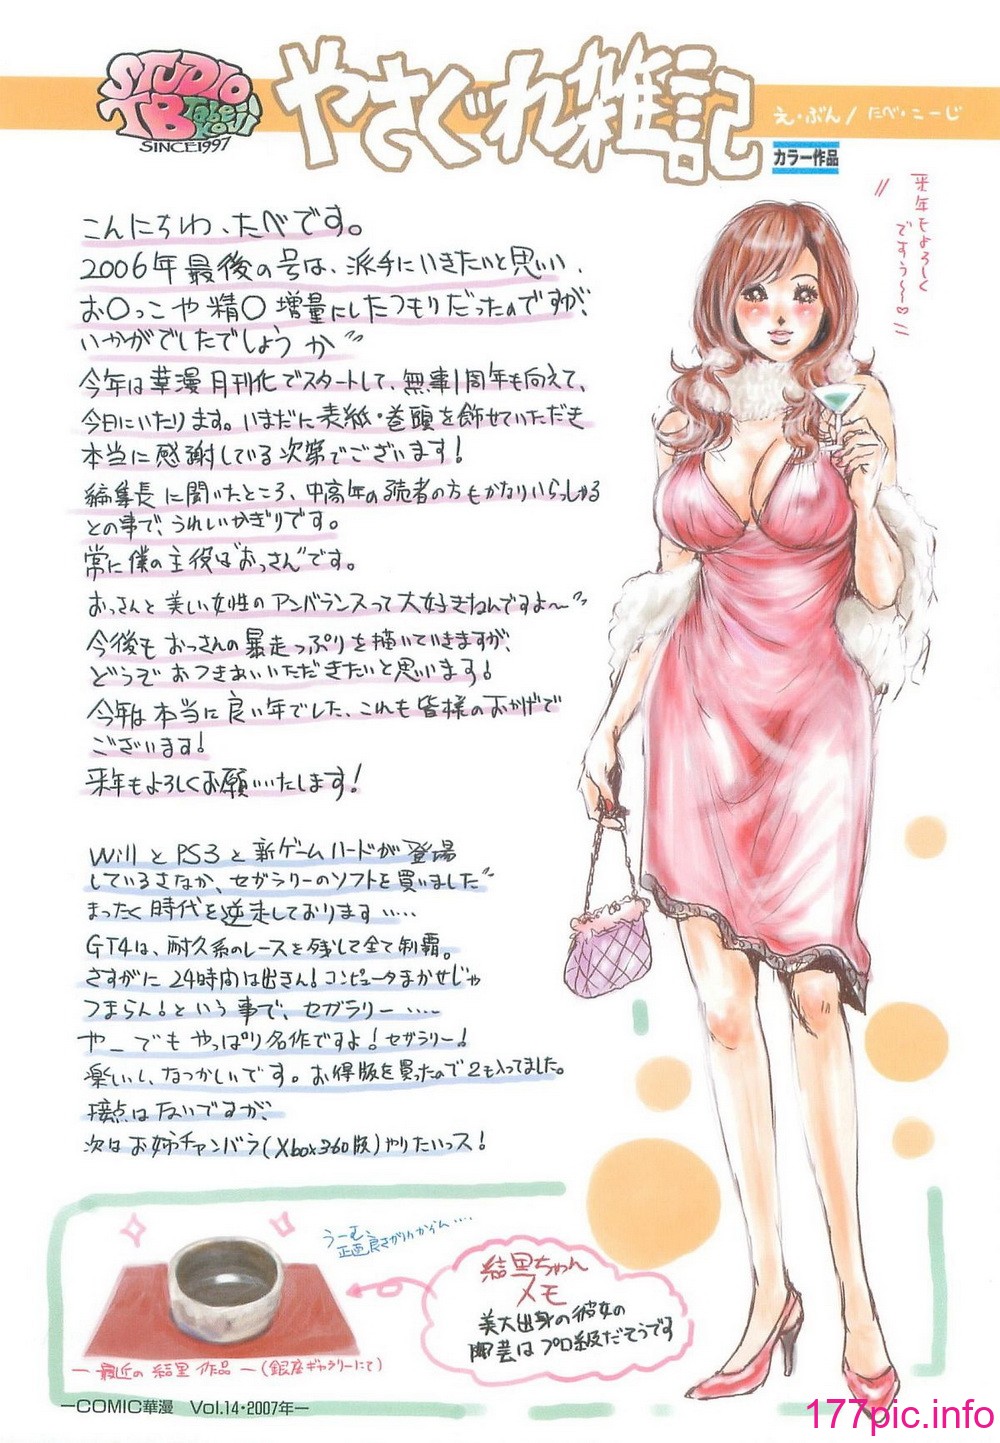 STUDIO
TB Tabe Koji
SINCE1997
やさぐれ雑記
え・ぶん/たべ・こーじ
カラー作品
来年もよろしく
ですぅ〜♡
こんにちわ、たべです。
2006年最後の号は、派手にいきたいと思い、
お〇っこや精〇増量にしたつもりだったのですが、
いかがでしたでしょうか"
今年は華漫月刊化でスタートして、無事1周年も向えて、
今日にいたります。いまだに表紙・巻頭を飾せていただき
本当に感謝している次第でございます!
編集長に聞いたところ、中高年の読者の方もかなりいらっしゃる
との事で、うれしいかぎりです。
常に僕の主役は"おっさん"です。
おっさんと美しい女性のアンバランスって大好きなんですよ〜"
今後もおっさんの暴走っぷりを描いていきますが、
どうぞおつきあいいただきたいと思います!
今年は本当に良い年でした、これも皆様のおかげで
ございます!
来年もよろしくお願いいたします!
WiiとPS3と新ゲームハードが登場
しているさなか、セガラリーのソフトを買いました"
まったく時代を逆走しております……
GT4は、耐久系のレースを残して全て制覇。
さすがに24時間は出きん!コンピュータまかせじゃ
つまらん!という事で、セガラリー……
や_でもやっぱり名作ですよ!セガラリー!
楽しいし、なつかしいです。お得版を買ったので2も入ってました。
接点はないですが、
次はお姉チャンバラ(Xbox360版)やりたいっス!
うーむ、
結里ちゃん
メモ
美大出身の彼女の
陶芸はプロ級だそうです
―最近の結里作品―(銀座ギャラリーにて)
―COMIC華漫 Vol.14・2007年―
177pic.info